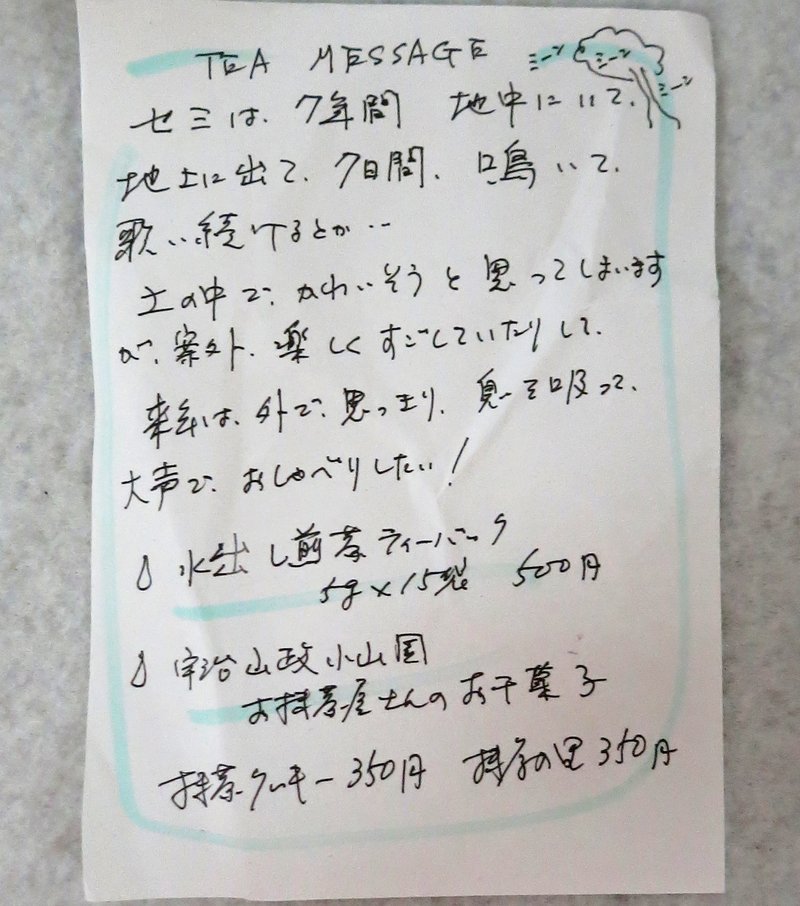 TEA MESSAGE
ミーン ミーン ミーン
セミは、7年間 地中にいて、
地上に出て、7日間、鳴いて、
歌い続けるとか…
土の中で、かわいそうと思ってしまいます
が、案外、楽しくすごしていたりして、
来年は、外で、思っきり、息を吸って、
大声で、おしゃべりしたい!
水出し煎茶ティーバック
5g×15袋 500円
宇治山政小山園
お抹茶屋さんのお干菓子
抹茶クッキー350円 抹茶の里350円